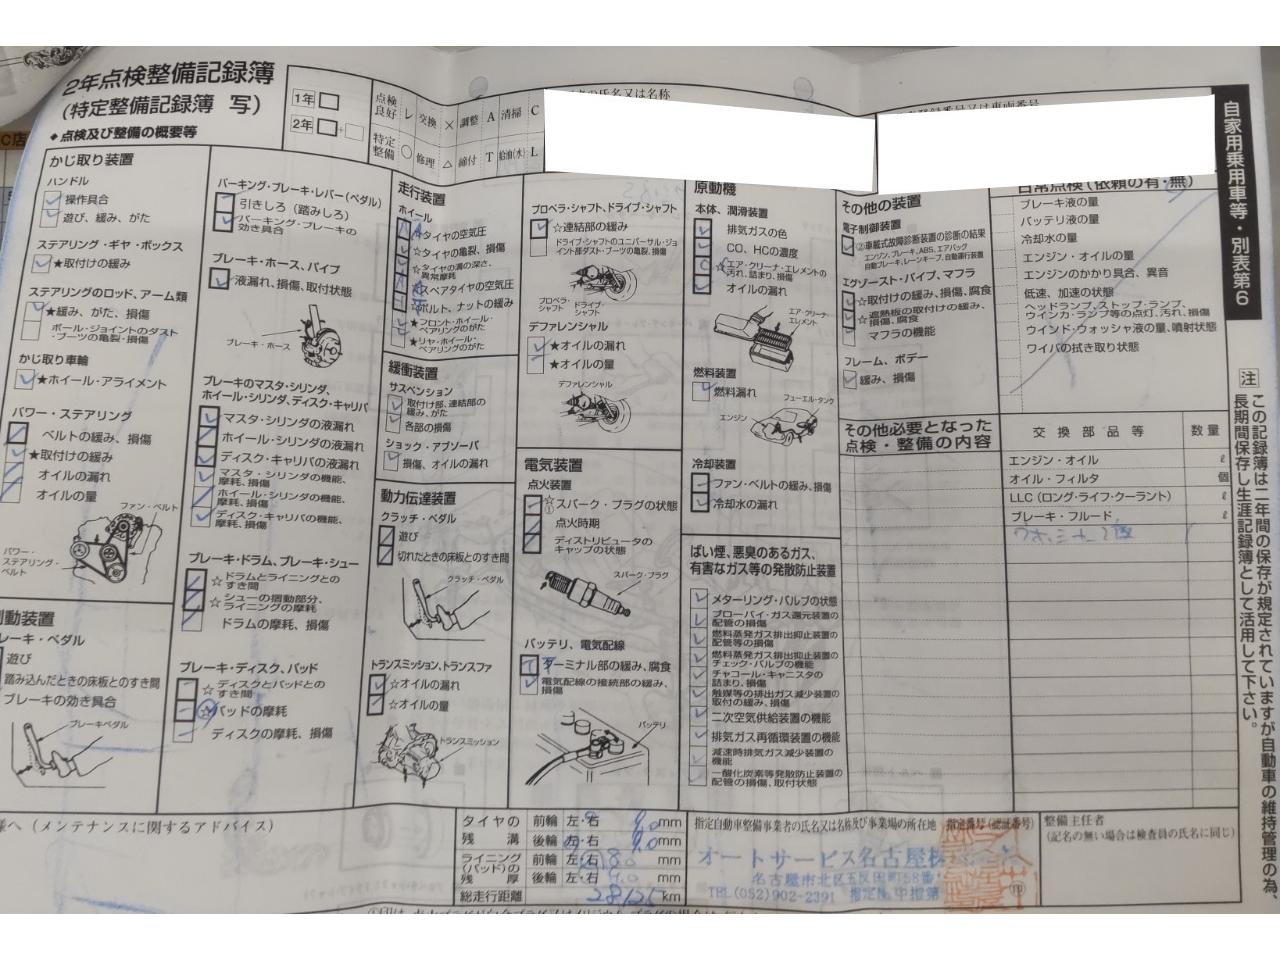 2年点検整備記録簿
(特定整備記録簿 写)
◆点検及び整備の概要等
1年
2年
点検良好 レ 交換 × 調整 A 清掃 C
特定整備 ○ 修理 △ 締付 T 給油(水) L
の氏名又は名称
自家用乗用車等・別表第6
かじ取り装置
ハンドル
操作具合
遊び、緩み、がた
ステアリング・ギヤ・ボックス
★取付けの緩み
ステアリングのロッド、アーム類
★緩み、がた、損傷
ボール・ジョイントのダスト・ブーツの亀裂・損傷
かじ取り車輪
★ホイール・アライメント
パワー・ステアリング
ベルトの緩み、損傷
★取付けの緩み
オイルの漏れ
オイルの量
ファン・ベルト
パワー・ステアリング・ベルト
制動装置
ブレーキ・ペダル
遊び
踏み込んだときの床板とのすき間
ブレーキの効き具合
ブレーキペダル
パーキング・ブレーキ・レバー(ペダル)
引きしろ(踏みしろ)
パーキング・ブレーキの効き具合
ブレーキ・ホース、パイプ
液漏れ、損傷、取付状態
ブレーキ・ホース
ブレーキのマスタ・シリンダ、
ホイール・シリンダ、ディスク・キャリパ
マスタ・シリンダの液漏れ
ホイール・シリンダの液漏れ
ディスク・キャリパの液漏れ
マスタ・シリンダの機能、摩耗、損傷
ホイール・シリンダの機能、摩耗、損傷
ディスク・キャリパの機能、摩耗、損傷
ブレーキ・ドラム、ブレーキ・シュー
☆ドラムとライニングとのすき間
☆シューの摺動部分、ライニングの摩耗
ドラムの摩耗、損傷
ブレーキ・ディスク、パッド
☆ディスクとパッドとのすき間
☆パッドの摩耗
ディスクの摩耗、損傷
走行装置
ホイール
☆タイヤの空気圧
☆タイヤの亀裂、損傷
☆タイヤの溝の深さ、異常摩耗
スペアタイヤの空気圧
ボルト、ナットの緩み
★フロント・ホイール・ベアリングのがた
★リヤ・ホイール・ベアリングのがた
緩衝装置
サスペンション
取付け部、連結部の緩み、がた
各部の損傷
ショック・アブソーバ
損傷、オイルの漏れ
動力伝達装置
クラッチ・ペダル
遊び
切れたときの床板とのすき間
クラッチ・ペダル
トランスミッション、トランスファ
☆オイルの漏れ
☆オイルの量
トランスミッション
プロペラ・シャフト、ドライブ・シャフト
☆連結部の緩み
ドライブ・シャフトのユニバーサル・ジョイント部ダスト・ブーツの亀裂、損傷
プロペラ・シャフト
ドライブ・シャフト
デファレンシャル
★オイルの漏れ
★オイルの量
デファレンシャル
電気装置
点火装置
☆①スパーク・プラグの状態
点火時期
ディストリビュータのキャップの状態
スパーク・プラグ
バッテリ、電気配線
ターミナル部の緩み、腐食
電気配線の接続部の緩み、損傷
バッテリ
原動機
本体、潤滑装置
排気ガスの色
CO、HCの濃度
☆エア・クリーナ・エレメントの汚れ、詰まり、損傷
オイルの漏れ
エア・クリーナ・エレメント
燃料装置
燃料漏れ
フューエル・タンク
エンジン
冷却装置
ファン・ベルトの緩み、損傷
冷却水の漏れ
ばい煙、悪臭のあるガス、
有害なガス等の発散防止装置
メターリング・バルブの状態
ブローバイ・ガス還元装置の配管の損傷
燃料蒸発ガス排出抑止装置の配管等の損傷
燃料蒸発ガス排出抑止装置のチェック・バルブの機能
チャコール・キャニスタの詰まり、損傷
触媒等の排出ガス減少装置の取付の緩み、損傷
二次空気供給装置の機能
排気ガス再循環装置の機能
減速時排気ガス減少装置の機能
一酸化炭素等発散防止装置の配管の損傷、取付状態
その他の装置
電子制御装置
②車載式故障診断装置の診断の結果
エンジン、ブレーキ、ABS、エアバック
自動ブレーキ、レーンキープ、自動運行装置
エグゾースト・パイプ、マフラ
☆取付けの緩み、損傷、腐食
☆遮熱板の取付けの緩み、損傷、腐食
マフラの機能
フレーム、ボデー
緩み、損傷
その他必要となった
点検・整備の内容
日常点検(依頼の有・無)
ブレーキ液の量
バッテリ液の量
冷却水の量
エンジン・オイルの量
エンジンのかかり具合、異音
低速、加速の状態
ヘッドランプ、ストップ・ランプ、
ウインカ・ランプ等の点灯、汚れ、損傷
ウインド・ウォッシャ液の量、噴射状態
ワイパの拭き取り状態
交換部品等 数量
エンジン・オイル ℓ
オイル・フィルタ 個
LLC(ロング・ライフ・クーラント) ℓ
ブレーキ・フルード ℓ
注 この記録簿は二年間の保存が規定されていますが自動車の維持管理の為、
長期間保存し生涯記録簿として活用して下さい。
様へ(メンテナンスに関するアドバイス)
タイヤの残溝 前輪 左・右 mm
後輪 左・右 9.0mm
ライニング(パッド)の残厚 前輪 左・右 8.0 mm
後輪 左・右 mm
総走行距離 28125km
指定自動車整備事業者の氏名又は名称及び事業場の所在地 指定番号(認証番号)
オートサービス名古屋株
名古屋市北区五反田町158番
TEL(052)902-2391 指定No.中指第
整備主任者
(記名の無い場合は検査員の氏名に同じ)